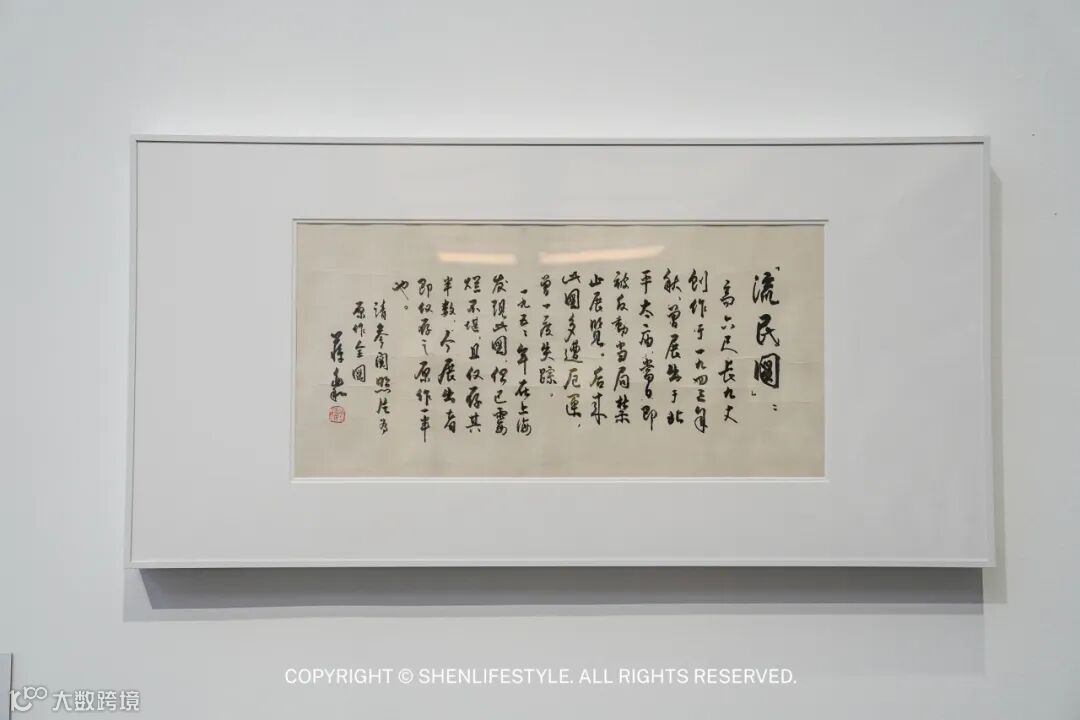 「流民图」：
高六尺长九丈
创作于一九四三年
秋，曾展出于北
平太庙，当日即
被反动当局禁
止展览。后来
此图多遭厄运，
曾一度失踪。
一九五三年在上海
发现此图，但已霉
烂不堪，且仅存其
半数，今展出者
即仅存之原作一半
也。
请参阅照片为
原作全图
蒋兆和
COPYRIGHT © SHENLIFESTYLE. ALL RIGHTS RESERVED.
大数跨境